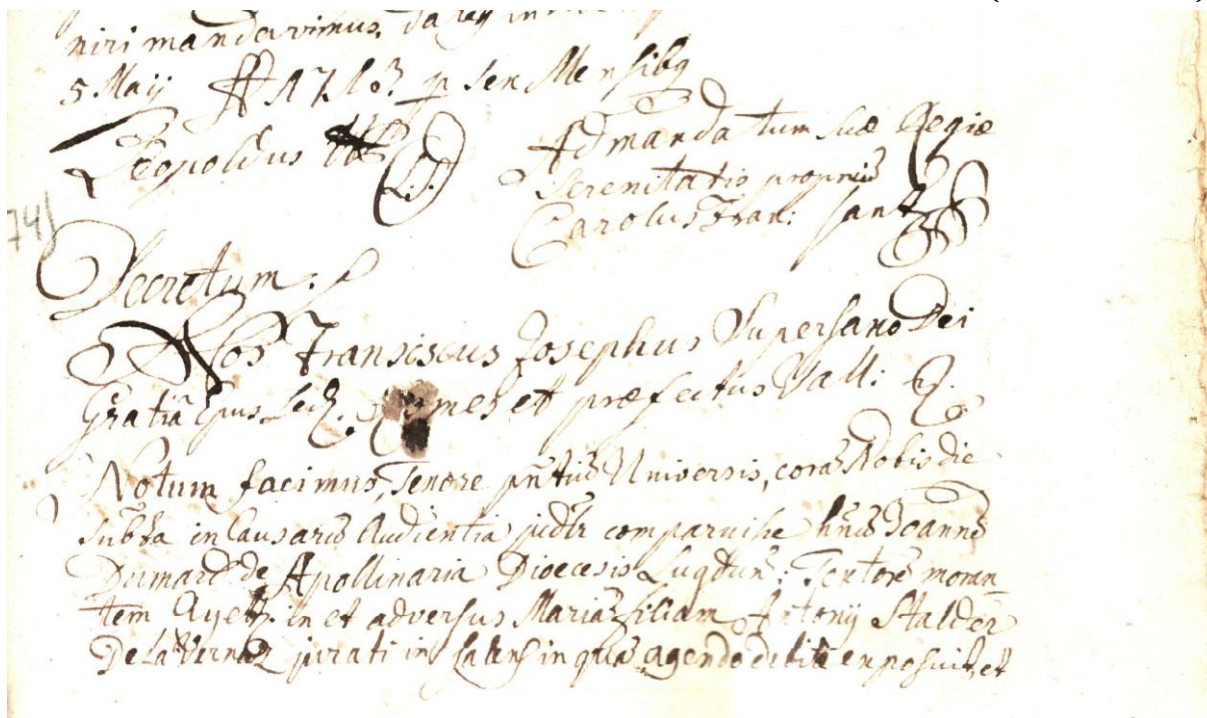 niri mandavimus. Datum in
5 Maij A 1710? p sen Mensibq
Leopoldus (L.S.) Ad mandatum suæ Regiæ
Serenitatis proprium
Carolus Fran: Sant
741
Decretum:
Nos Franciscus Josephus Supersaxo Dei
Gratiâ Epus Sed. Comes et præfectus Vall:
Notum facimus, Tenore pntiu Universis, coram Nobis die
subsa in Causaru Audientia judlr comparuisse hnu Joanne
Dumard de Apollinaria Dioecesis Lugdun: Textore moran
tem Ayeth. in et adversus Maria filiam Antonij Stalder
De la Vernaz jurati in Salens in qua agendo debitè exposuit, et